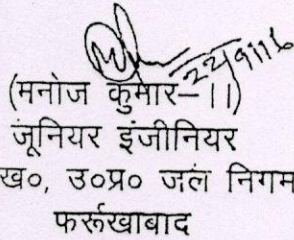 22/9/16
(मनोज कुमार–।।)
जूनियर इंजीनियर
ख०, उ०प्र० जल निगम
फर्रूखाबाद